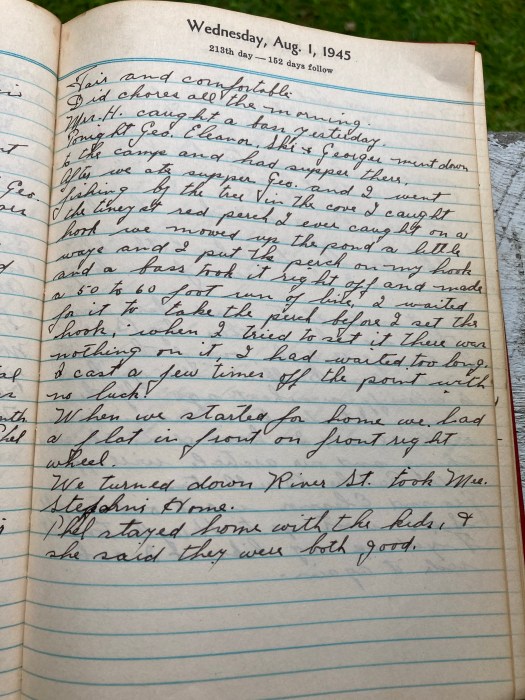 Wednesday, Aug. 1, 1945
213th day — 152 days follow
Fair and comfortable
Did chores all the morning.
Mrs. H. caught a bass yesterday.
Tonight Geo. Eleanor, Ski & Georgie went down
to the camp and had supper there.
After we ate supper Geo. and I went
fishing by the tree in the cove I caught
the tineyest red perch I ever caught on a
hook we moved up the pond a little
waye and I put the perch on my hook
and a bass took it right off and made
a 50 to 60 foot run of line, I waited
for it to take the perch before I set the
hook, when I tried to set it there was
nothing on it, I had waited too long.
I cast a few times off the point with
no luck.
When we started for home we had
a flat in front on front right
wheel.
We turned down River St. took Mrs.
Home.
Phel stayed home with the kids, &
she said they were both good.
Geo.